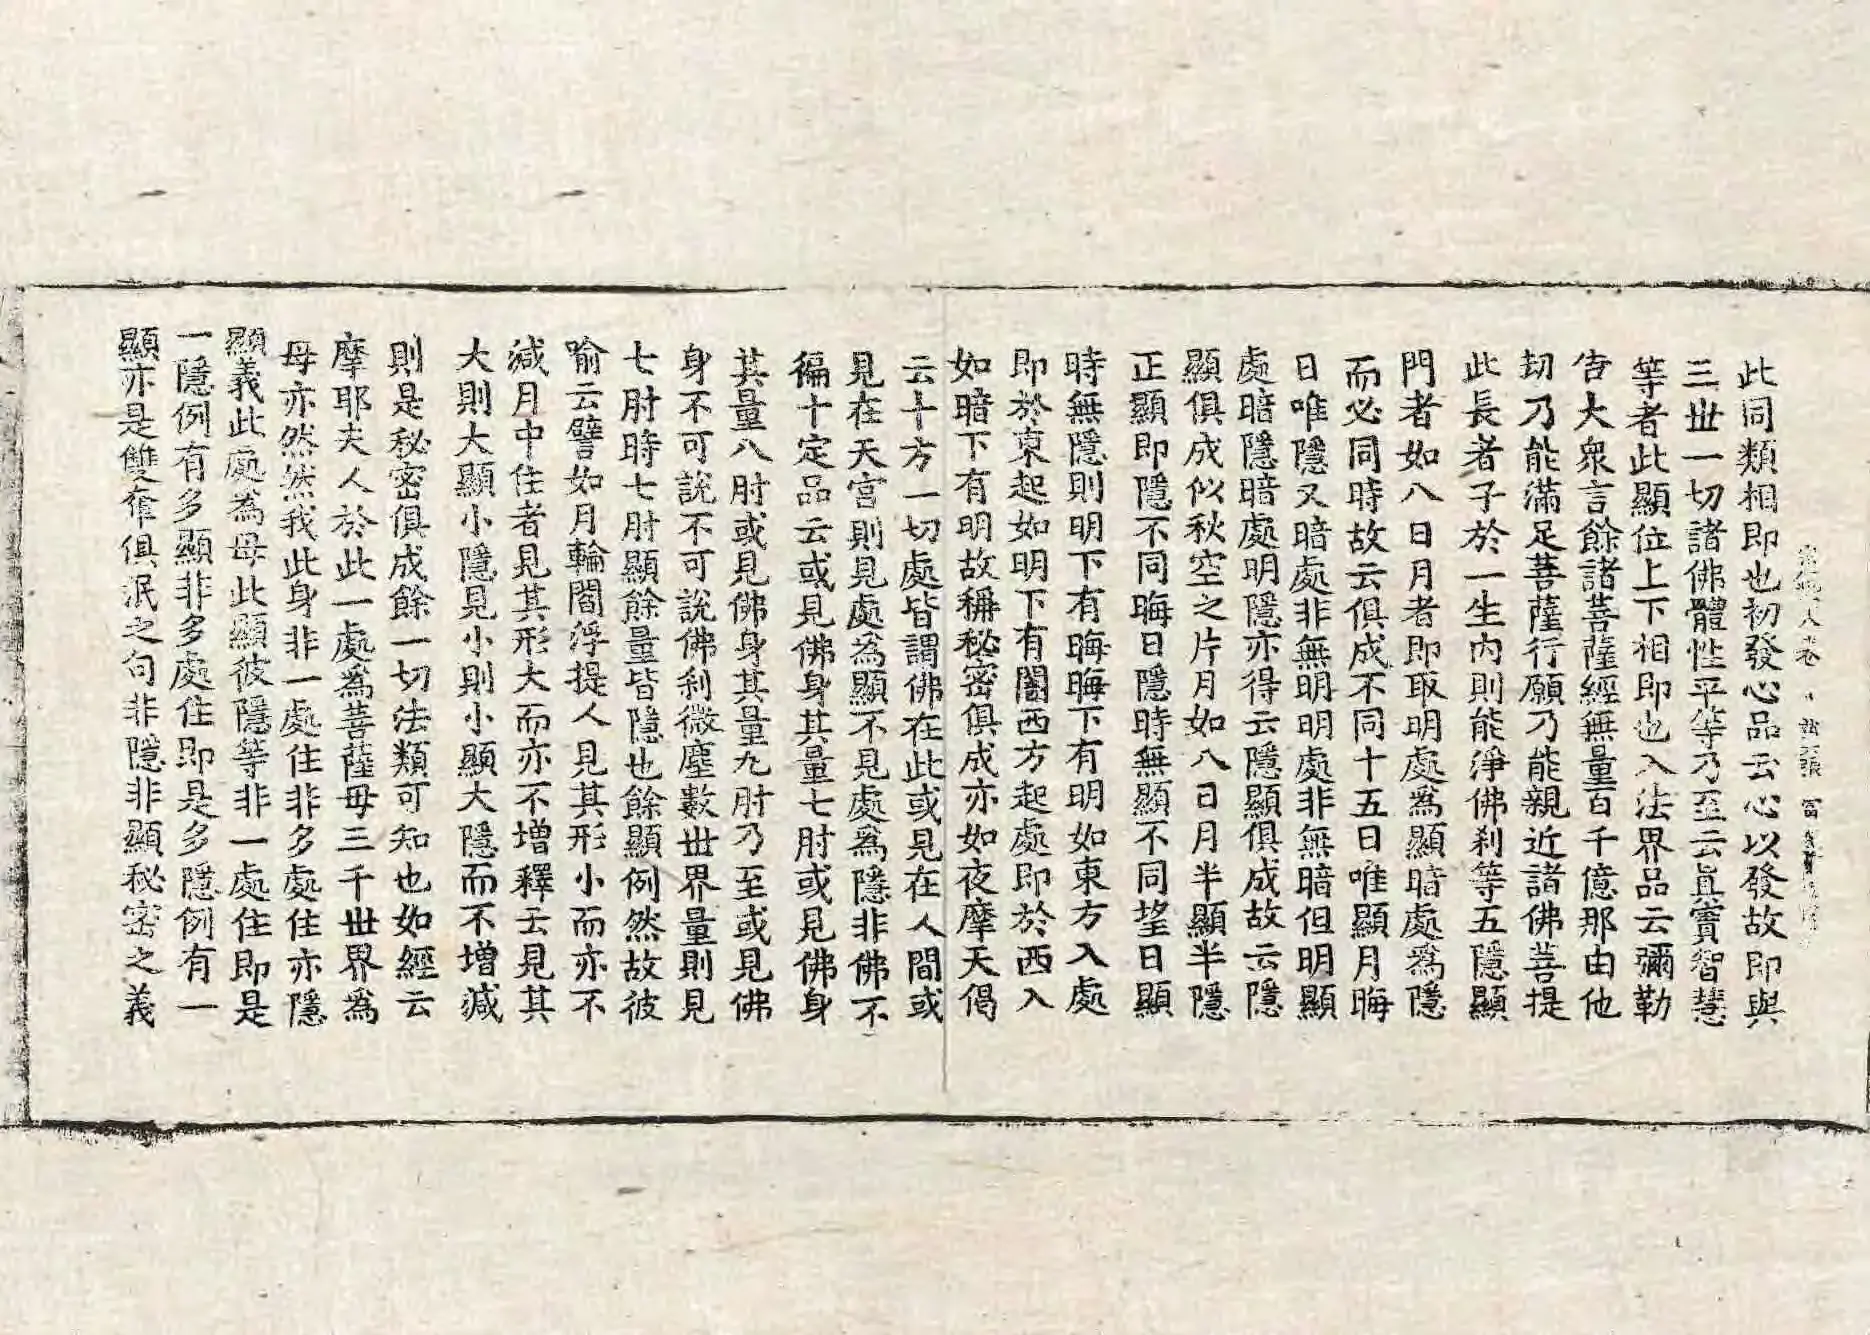 此同類相即也初發心品云心以發故即與
三丗一切諸佛體性平等乃至云眞實智慧
等者此顯位上下相即也入法界品云彌勒
告大衆言餘諸菩薩經無量百千億那由他
劫乃能滿足菩薩行願乃能親近諸佛菩提
此長者子於一生內則能淨佛刹等五隱顯
門者如八日月者即取明處爲顯暗處爲隱
而必同時故云俱成不同十五日唯顯月晦
日唯隱又暗處非無明明處非無暗但明顯
處暗隱暗處明隱亦得云隱顯俱成故云隱
顯俱成似秋空之片月如八日月半顯半隱
正顯即隱不同晦日隱時無顯不同望日顯
時無隱則明下有晦晦下有明如東方入處
即於東起如明下有闇西方起處即於西入
如暗下有明故稱秘密俱成亦如夜摩天偈
云十方一切處皆謂佛在此或見在人間或
見在天宮則見處爲顯不見處爲隱非佛不
徧十定品云或見佛身其量七肘或見佛身
其量八肘或見佛身其量九肘乃至或見佛
身不可說不可說佛刹微塵數丗界量則見
七肘時七肘顯餘量皆隱也餘顯例然故彼
喻云譬如月輪閻浮提人見其形小而亦不
減月中住者見其形大而亦不增釋云見其
大則大顯小隱見小則小顯大隱而不增減
則是秘密俱成餘一切法類可知也如經云
摩耶夫人於此一處爲菩薩母三千丗界爲
母亦然然我此身非一處住非多處住亦隱
顯義此處爲母此顯彼隱等非一處住即是
一隱例有多顯非多處住即是多隱例有一
顯亦是雙奪俱泯之句非隱非顯秘密之義